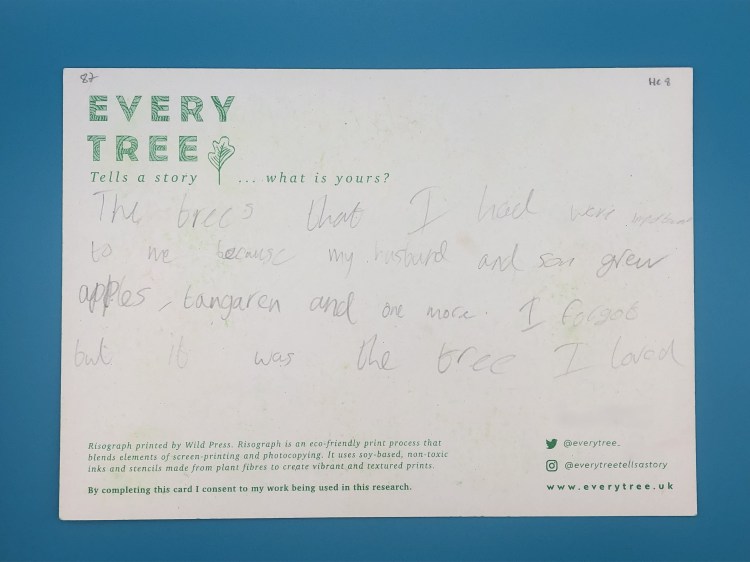 87
He 8
EVERY
TREE
Tells a story ... what is yours?
The trees that I had were important
to me because my husband and son grew
apples, tangaren and one more. I forgot
but it was the tree I loved
Risograph printed by Wild Press. Risograph is an eco-friendly print process that
blends elements of screen-printing and photocopying. It uses soy-based, non-toxic
inks and stencils made from plant fibres to create vibrant and textured prints.
By completing this card I consent to my work being used in this research.
@everytree_
@everytreetellsastory
www.everytree.uk